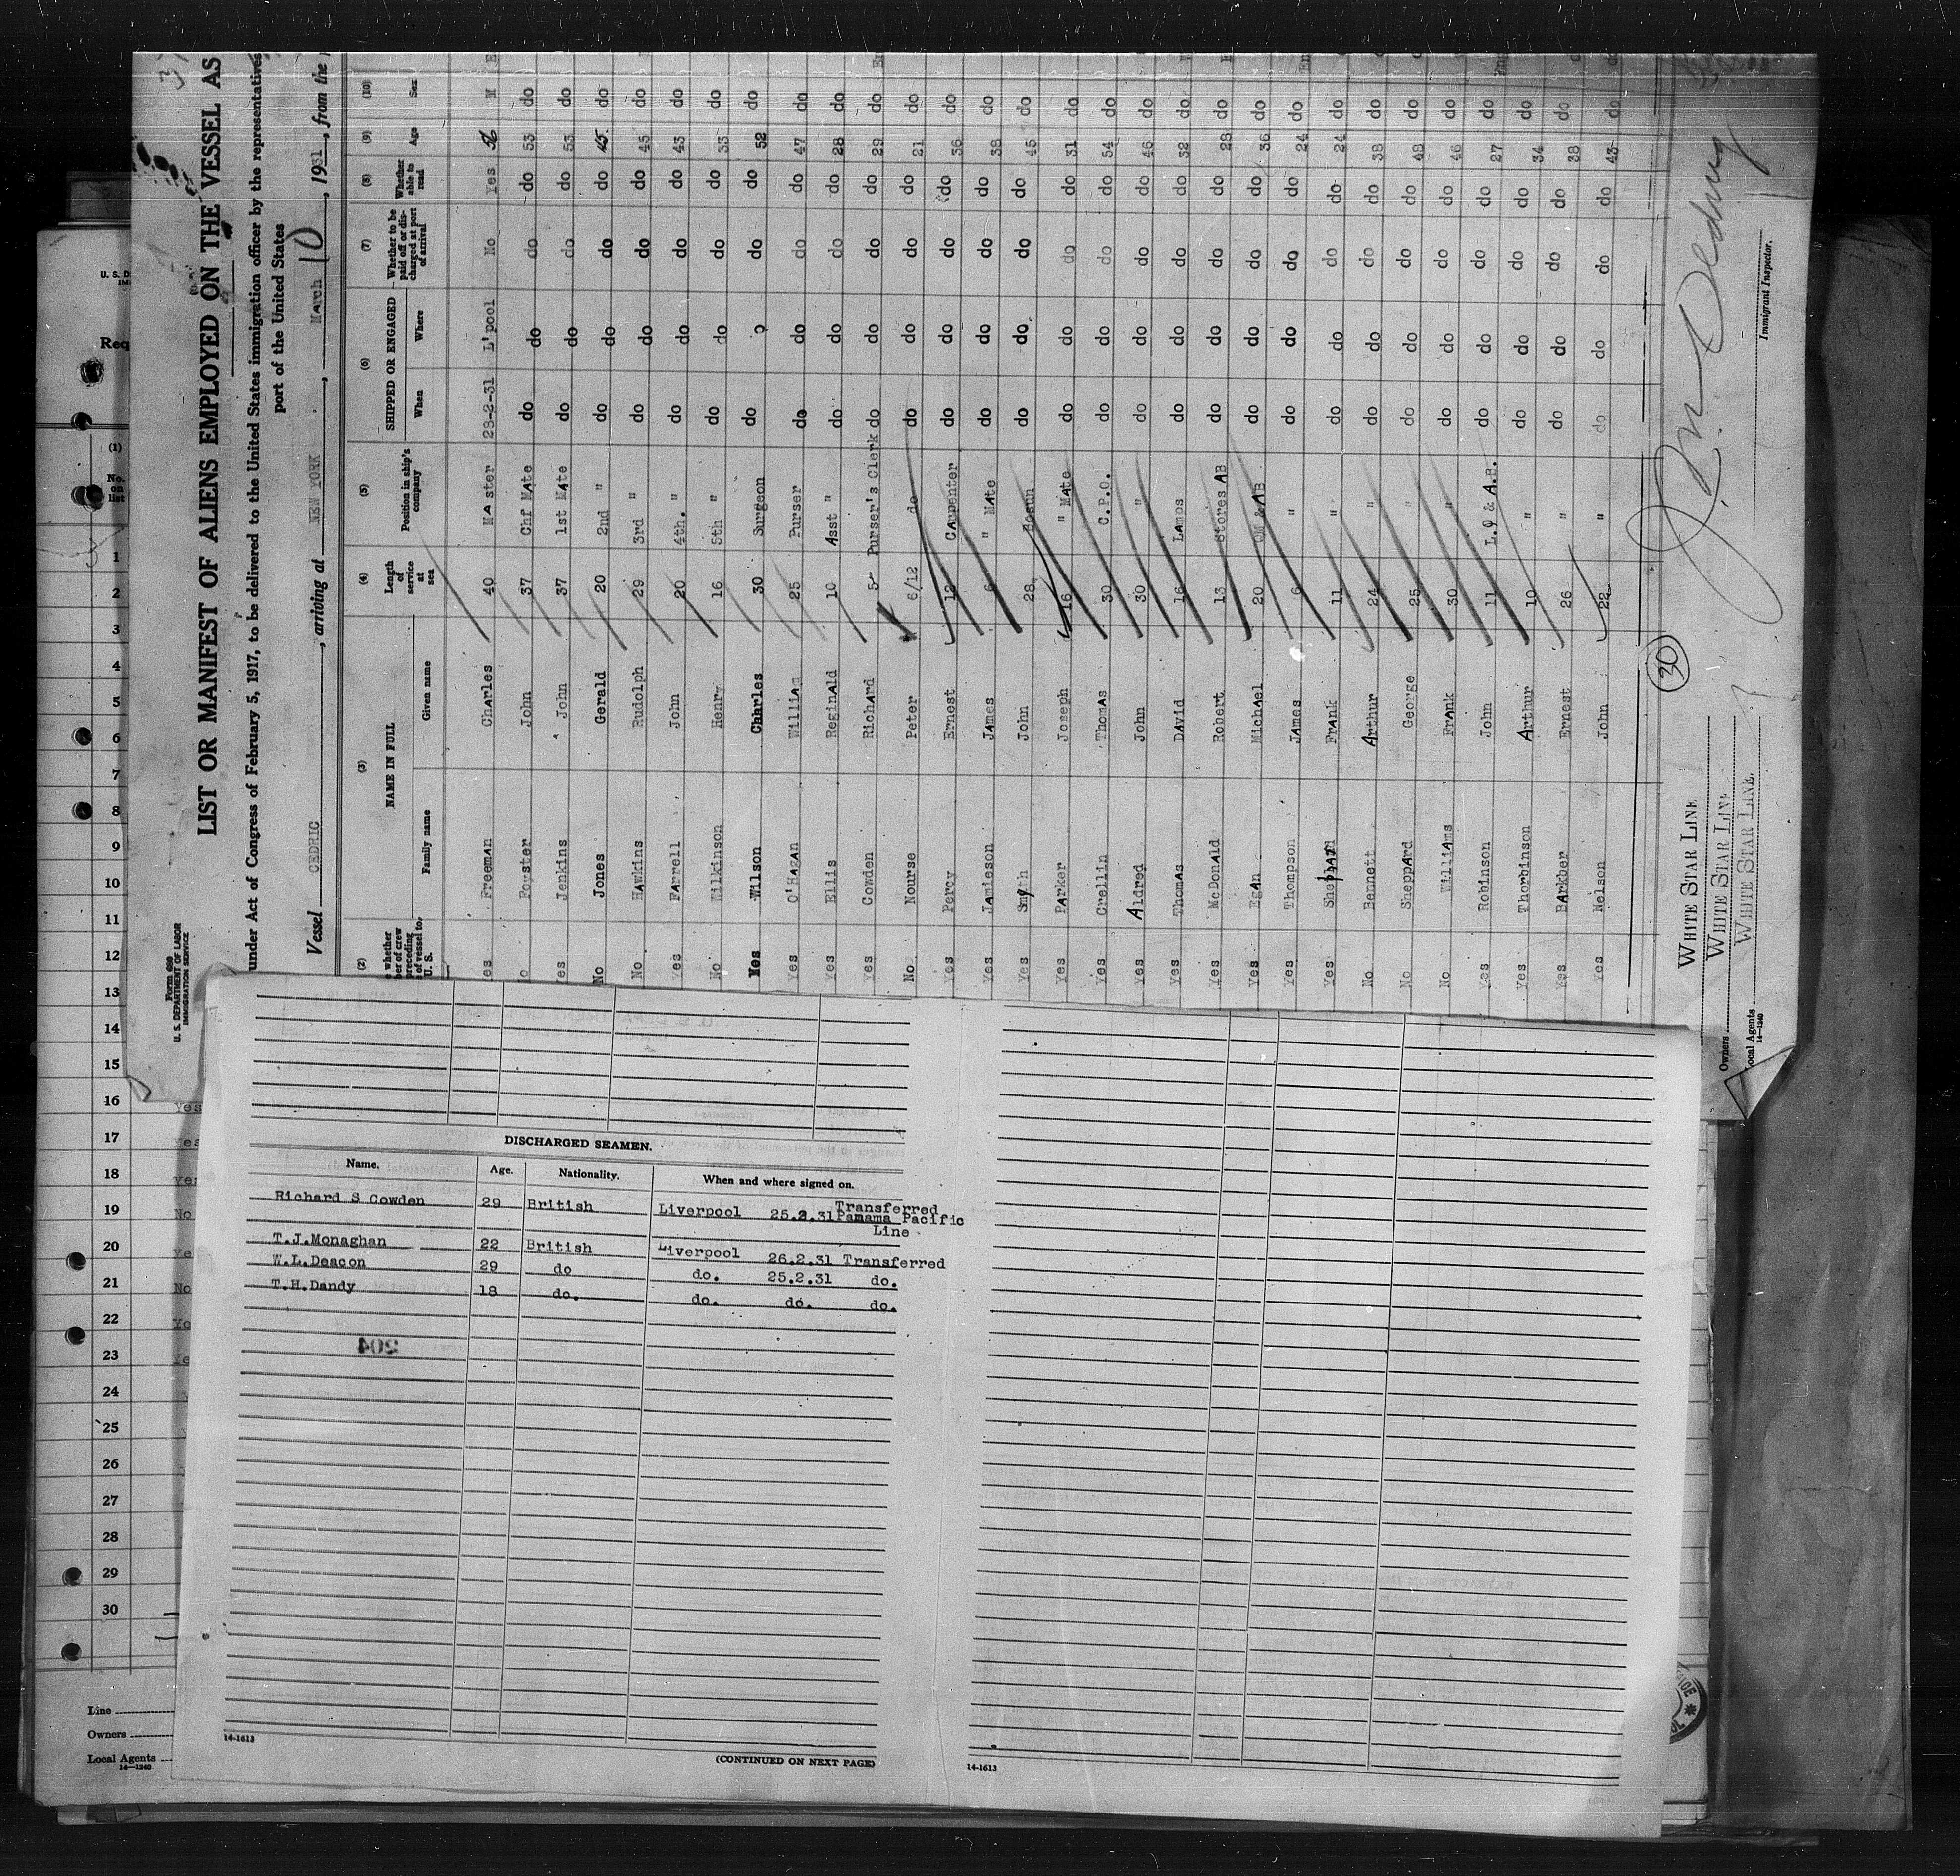 Form 680
U. S. DEPARTMENT OF LABOR
IMMIGRATION SERVICE
LIST OR MANIFEST OF ALIENS EMPLOYED ON THE VESSEL AS
under Act of Congress of February 5, 1917, to be delivered to the United States immigration officer by the representatives
port of the United States
Vessel CEDRIC, arriving at NEW YORK, March 10, 1931, from the
(2) (3) (4) (5) (6) (7) (8) (9) (10)
whether
of crew
preceding
of vessel to
U. S.
NAME IN FULL
Family name Given name
Length of service at sea
Position in ship's company
SHIPPED OR ENGAGED
When Where
Whether to be paid off or discharged at port of arrival
Whether able to read
Age
Sex
Yes Freeman Charles 40 MAster 23-2-31 L'pool No Yes 56 M
No Forster John 37 Chf MAte do do do do 53 do
Yes Jenkins John 37 1st MAte do do do do 53 do
No Jones Gerald 20 2nd " do do do do 45 do
No Hawkins Rudolph 29 3rd " do do do do 45 do
Yes FArrell John 20 4th. " do do do do 43 do
No Wilkinson Henry 16 5th " do do do do 33 do
Yes Wilson Charles 30 Surgeon do do do 52 do
Yes O'HAgan William 25 Purser do do do do 47 do
Yes Ellis Reginald 10 Asst " do do do do 28 do
Yes Cowden Richard 5 Purser's Clerk do do do do 29 do
No Nourse Peter 6/12 do do do do do 21 do
Yes Percy Ernest 12 CArpenter do do do do 36 do
Yes JAmieson JAmes 6 " MAte do do do do 38 do
Yes Smyth John 28 Bosun do do do do 45 do
Yes PArker Joseph 16 " MAte do do do do 31 do
Yes Chellin Thomas 30 C.P.O. do do do do 54 do
Yes Aldred John 30 " do do do do 46 do
Yes Thomas David 16 LAmps do do do do 32 do
Yes McDonAld Robert 13 Stores AB do do do do 28 do
Yes Egan MichAel 20 QM & AB do do do do 36 do
Yes Thompson JAmes 6 " do do do do 24 do
Yes Frank 11 " do do do do 24 do
No Bennett Arthur 24 " do do do do 38 do
No SheppArd George 25 " do do do do 48 do
No WilliAms FrAnk 30 " do do do do 46 do
Yes Robinson John 11 L.O & A.B. do do do do 27 do
Yes Thorbinson Arthur 10 " do do do do 34 do
Yes BArkber Ernest 26 " do do do do 38 do
Yes Nelson John 22 " do do do do 43 do
30
WHITE STAR LINE
Owners WHITE STAR LINE
Local Agents WHITE STAR LINE.
14—1240
Immigrant Inspector.
U. S. D
Req
(1)
No.
on
list
1
2
3
4
5
6
7
8
9
10
11
12
13
14
15
16 Yes
17 Yes
18 Yes
19 No
20 Ye
21 No
22 Ye
23 Ye
24
25
26
27
28
29
30
Line
Owners
Local Agents
14—1240
DISCHARGED SEAMEN.
Name. Age. Nationality. When and where signed on.
Richard S Cowden 29 British Liverpool 25.2.31 Transferred
Panama Pacific
Line
T.J.Monaghan 22 British Liverpool 26.2.31 Transferred
W.L.Deacon 29 do do. 25.2.31 do.
T.H.Dandy 18 do. do. do. do.
204
14-1613
(CONTINUED ON NEXT PAGE)
14-1613